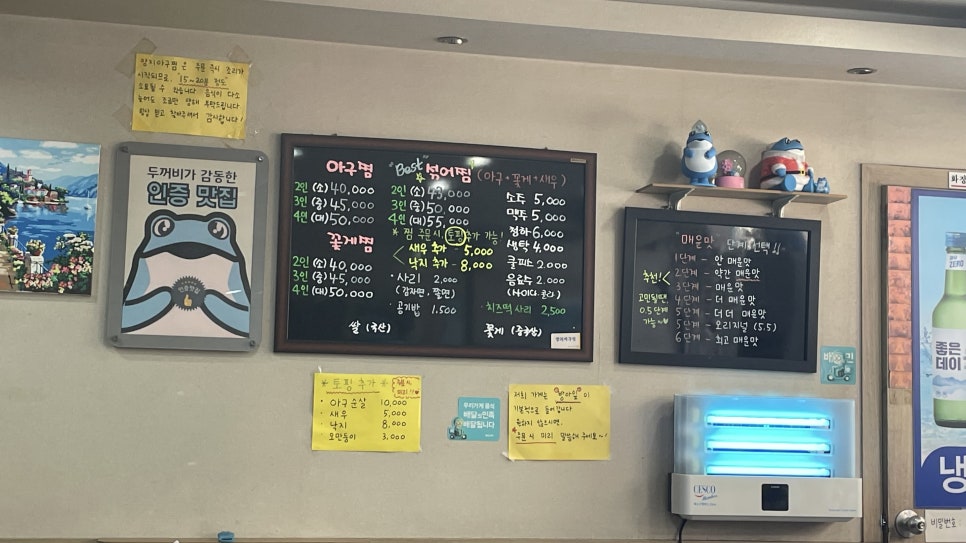 망치아구찜은 주문 즉시 조리가
시작되므로, "15~20분 정도"
소요될 수 있습니다. 음식이 다소
늦어도 조금만 양해 부탁드립니다
감사합니다!
두꺼비가 감동한
인증 맛집
아구찜
2인 (소) 40,000
3인 (중) 45,000
4인 (대) 50,000
꽃게찜
2인 (소) 40,000
3인 (중) 45,000
4인 (대) 50,000
쌀 (국산)
"Best" 섞어찜! (아구+꽃게+새우)
2인 (소) 45,000
3인 (중) 50,000
4인 (대) 55,000
* 찜 주문시, 토핑추가 가능!
새우 추가 - 5,000
낙지 추가 - 8,000
· 사리 2,000
(감자면, 쫄면)
· 공기밥 1.500
소주 5,000
맥주 5,000
청하 6,000
생탁 4.000
쿨피스 2.000
음료수 2.000
(사이다. 콜라)
치즈떡 사리 2,500
꽃게 (중국산)
"매운맛" 단계 선택!!
1단계 - 안 매운맛
2단계 - 약간 매운맛
3단계 - 매운맛
4단계 - 더 매운맛
5단계 - 더더 매운맛
5단계 - 오리지널 (5.5)
6단계 - 최고 매운맛
추천!
고민될땐,
0.5단계
가능~
* 토핑 추가 *
· 아구순살 10,000
· 새우 5,000
· 낙지 8,000
· 오만둥이 3,000
우리가게 음식
배달의민족
배달됩니다
저희 가게는 "방아잎"이
기본적으로 들어갑니다
원하지 않으시면,
주문 시 미리 말씀해 주세요~!
CESCO
화장
ZERO
좋은
데이
냉
비밀번호: